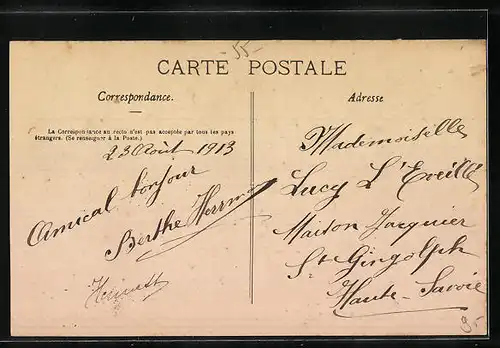 55-
CARTE POSTALE
Correspondance.
Adresse
La Correspondance au recto n'est pas acceptée par tous les pays
étrangers. (Se renseigner à la Poste.)
23 Août 1913
Amical bonjour
Berthe
Mademoiselle
Lucy L'Eveillé
Maison Jacquier
St Gingolph
Haute-Savoie